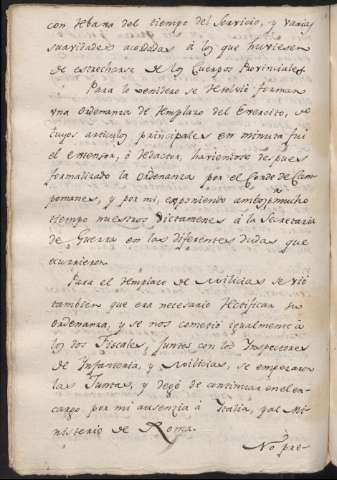 con rebaxa del tiempo del servicio, y varias
suavidades acordadas á los que huviesen
de extraherse de los Cuerpos Provinciales.
Para lo venidero se resolvió formar
una ordenanza de remplazo del Exercito, de
cuyos articulos principales en minuta fui
el extensor, ó redactor, haviendose despues
formalizado la ordenanza por el Conde de Cam
pomanes, y por mi, exponiendo ambos á mucho
tiempo nuestros dictamenes á la Secretaria
de Guerra en las diferentes dudas que
ocurrieron.
Para el remplazo de Milicias se vió
tambien que era necesario rectificar su
ordenanza, y se nos cometió igualmente á
los dos Fiscales, juntos con los Inspectores
de Infanteria, y Milicias, se empezaron
las Juntas, y dexé de continuar en el en-
cargo por mi ausenzia á Italia, y al Mi-
nisterio de Roma.
No pre-